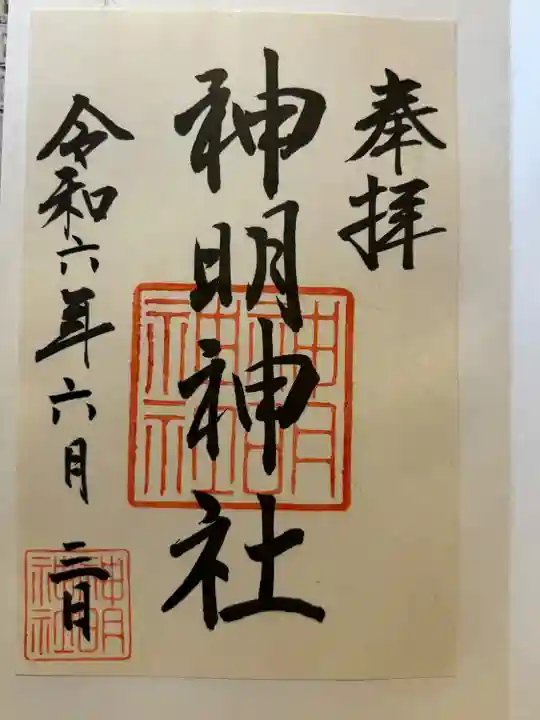 奉拝
神明神社
令和六年六月二日
神明神社
神明神社